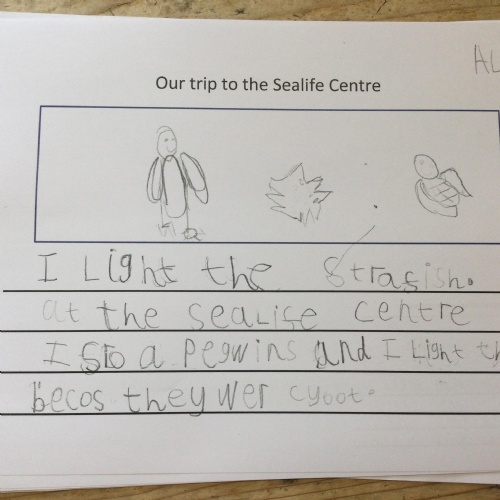 AL
Our trip to the Sealife Centre
I Light the Strafish.
at the sealife centre
I So a Pegwins and I Light th
becos they wer cyoot.